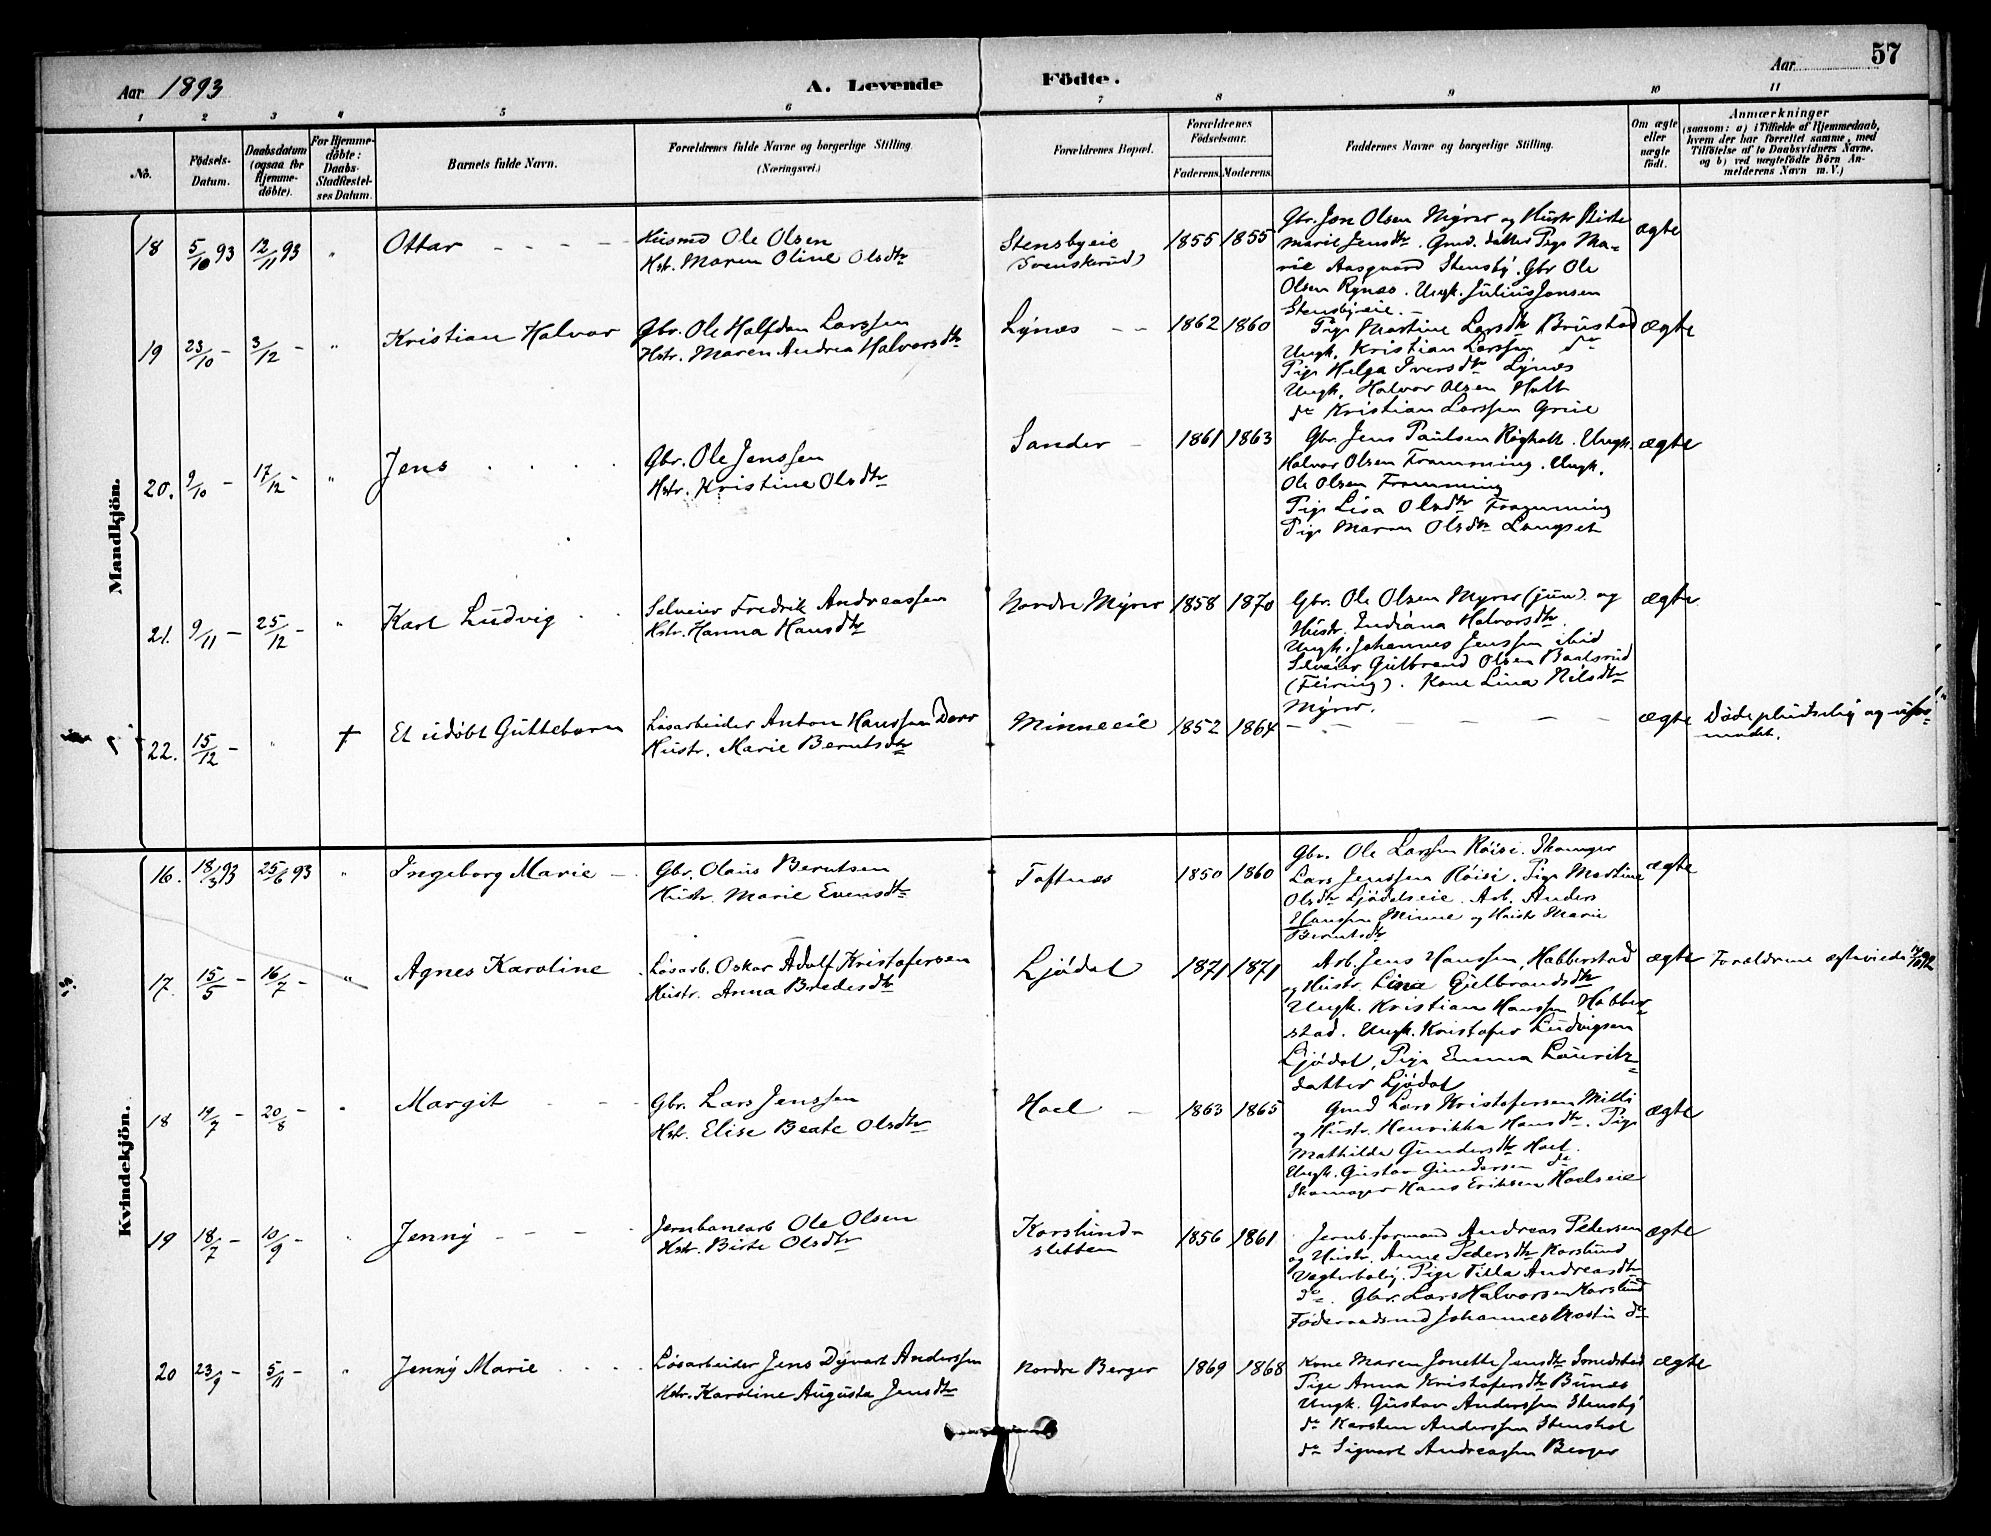 57
Aar 1893 A. Levende Födte. Aar
1 2 3 4 5 6 7 8 9 10 11
No. Födsels-Datum. Daabsdatum (ogsaa for Hjemme-döbte). For Hjemme-döbte: Daabs-Stadfæstel-ses Datum. Barnets fulde Navn. Forældrenes fulde Navne og borgerlige Stilling. (Næringsvei.) Forældrenes Bopæl. Forældrenes Födselsaar. Faderens. Moderens. Faddernes Navne og borgerlige Stilling. Om ægte eller uægte födt. Anmærkninger
(saasom: a) i Tilfælde af Hjemmedaab, hvem der har forrettet samme, med Tilföielse af to Daabsvidners Navne, og b) ved uægtefödte Börn An-melderens Navn m. V.)
Mandkjön.
18 5/10 93 12/11 93 " Ottar Husmd Ole Olsen
Hst. Maren Oline Olsdtr
Stensbyeie
(Svenskerud)
1855 1855
Gbr. Jon Olsen Myrer og Hustr Birte
Marie Jensdtr. Gmd. datter Pige Ma-
rie Aasgaard Stensby. Gbr Ole
Olsen Rynæs. Ungk. Julius Jonsen
Stensbyeie.
ægte
19 23/10 - 3/12 - " Kristian Halvor Gbr. Ole Halfdan Larssen
Hstr. Maren Andrea Halvorsdtr
Lynæs
1862 1860
Pige Martine Larsdtr Brustad
Ungk. Kristian Larssen do
Pige Helga Iversdtr Lynæs
Ungk. Halvor Olsen Holt
do Kristian Larssen Grue
ægte
20. 9/10 - 17/12 - " Jens Gbr. Ole Jenssen
Hstr. Kristine Olsdtr
Sander
1861 1863
Gbr. Jens Paulsen Røgholt. Ungk.
Halvor Olsen Framning. Ungk.
Ole Olsen Framning
Pige Lisa Olsdtr Framning
Pige Maren Olsdtr Langset
ægte
21. 9/11 - 25/12 - " Karl Ludvig Selveier Fredrik Andreassen
Hstr. Hanna Hansdtr
Nordre Myrer
1858 1870
Gbr. Ole Olsen Myrer (jun). og
Hustr. Indiana Halvorsdtr.
Ungk. Johannes Jenssen ibid
Selveier Gulbrand Olsen Baalsrud
(Feiring). Kone Lina Nilsdtr
Myrer.
ægte
22. 15/12 - " † Et udøbt Guttebarn Løsarbeider Anton Hanssen Dorr
Hustr. Marie Berntsdtr
Minneeie
1852 1864
ægte
Døde pludselig og ufor-
modet.
Kvindekjön.
16. 18/3 93 25/6 93 " Ingeborg Marie Gbr. Olaus Berntsen
Hustr. Marie Evensdtr
Toftnæs
1850 1860
Gbr. Ole Larssen Røisi. Skomager
Lars Jenssen Røisi. Pige Martine
Olsdtr Ljødalseie. Arb. Anders
Hanssen Minne og Hustr Marie
Berntsdtr
ægte
17. 15/5 - 16/7 - " Agnes Karoline Løsarb. Oskar Adolf Kristofersen
Hustr. Anna Bredesdtr
Ljødal
1871 1871
Arb. Jens Hanssen, Habberstad
og Hustr. Lina Gulbrandsdtr
Ungk. Kristian Hanssen Habber-
stad. Ungk. Kristofer Ludvigsen
Ljødal, Pige Emma Lauritz-
datter Ljødal
ægte
Forældrene egteviede 14/10 92
18 19/7 - 20/8 - " Margit Gbr. Lars Jenssen
Hst. Elise Beate Olsdtr
Hoel
1863 1865
Gmd Lars Kristofersen Milli
og Hustr. Henrikka Hansdtr. Pige
Mathilde Gundersdtr Hoel.
Ungk. Gustav Gundersen do
Skomager Hans Eriksen Hoelseie
ægte
19 18/7 - 10/9 - " Jenny Jernbanearb Ole Olsen
Hstr. Birte Olsdtr
Korslund-
sletten
1856 1861
Jernb. formand Andreas Pedersen
og Hustr. Anne Pedersdtr Korslund
Vogterbolig. Pige Tilla Andreasdtr
do. Gbr. Lars Halvorsen Korslund
Föderaadsmd Johannes Mostu do
ægte
20 23/9 - 5/11 - " Jenny Marie Løsarbeider Jens Dyvart Anderssen
Hstr. Karoline Augusta Jensdtr
Nordre Berger
1869 1868
Kone Maren Jonette Jensdtr Smedstad
Pige Anna Kristofersdtr Bunæs
Ungk. Gustav Anderssen Stensby
do Karsten Anderssen Stenshol
do Sigvart Andreassen Berger
ægte